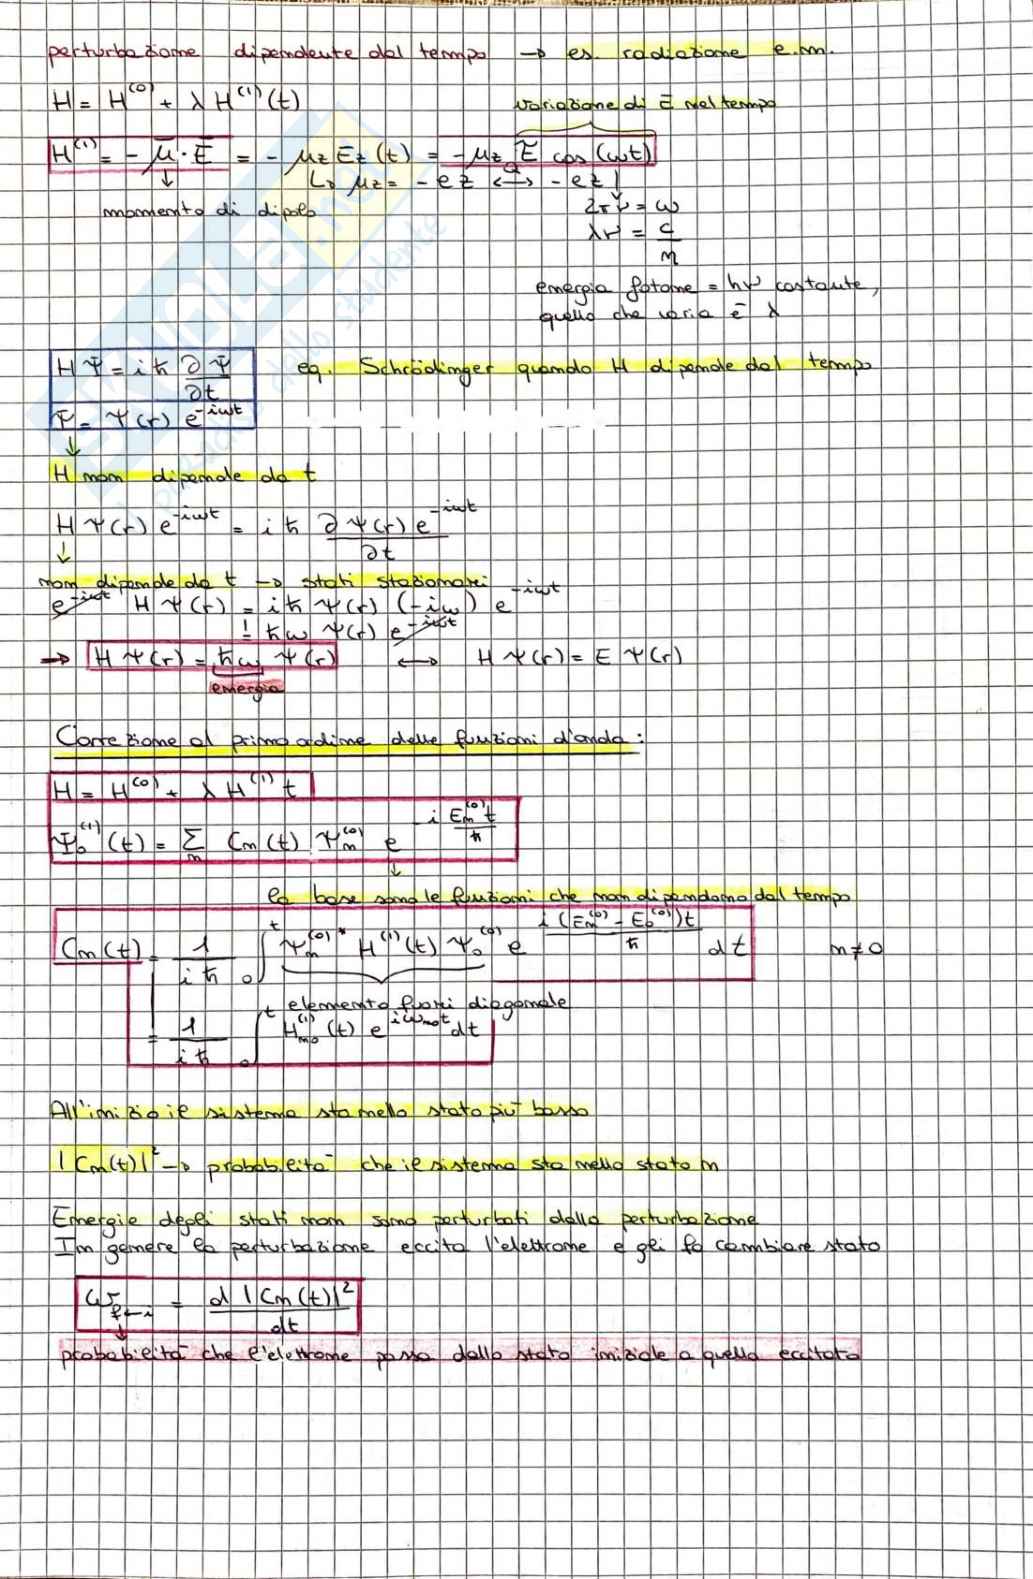 perturbazione dipendente dal tempo → es. radiazione e.m.
H = H⁽⁰⁾ + λ H⁽¹⁾(t)
variazione di Ē nel tempo
H⁽¹⁾ = - μ̄ · Ē = - μz Ez (t) = - μz Ē cos (ωt)
↳ μz = - e z ⟷ - e z
momento di dipolo
2πν = ω
λν = c/n
energia fotone = hν costante,
quello che varia è λ
H Ψ = i ħ ∂Ψ/∂t eq. Schrödinger quando H dipende dal tempo
Ψ = ψ(r) e^(-iωt)
↓
H non dipende da t
H ψ(r) e^(-iωt) = i ħ ∂ ψ(r) e^(-iωt) / ∂t
↓
non dipende da t → stati stazionari
e^(-iωt) H ψ(r) = i ħ ψ(r) (-iω) e^(-iωt)
= ħω ψ(r) e^(-iωt)
⇒ H ψ(r) = ħω ψ(r) ⟷ H ψ(r) = E ψ(r)
energia
Correzione al primo ordine delle funzioni d'onda:
H = H⁽⁰⁾ + λ H⁽¹⁾ t
Ψ₀⁽¹⁾(t) = Σm Cm(t) ψm⁽⁰⁾ e^(-i Em⁽⁰⁾t/ħ)
↓
la base sono le funzioni che non dipendono dal tempo
Cm(t) = 1/iħ ₀∫ᵗ ψm⁽⁰⁾* H⁽¹⁾(t) ψ₀⁽⁰⁾ e^(i (Em⁽⁰⁾ - E₀⁽⁰⁾)t/ħ) dt m≠0
elemento fuori diagonale
= 1/iħ ₀∫ᵗ Hm0⁽¹⁾(t) e^(iωm0t) dt
All'inizio il sistema sta nello stato più basso
|Cm(t)|² → probabilità che il sistema sta nello stato m
Energie degli stati non sono perturbati dalla perturbazione
In genere la perturbazione eccita l'elettrone e gli fa cambiare stato
ω f←i = d |Cm(t)|² / dt
↓
probabilità che l'elettrone passa dallo stato iniziale a quello eccitato